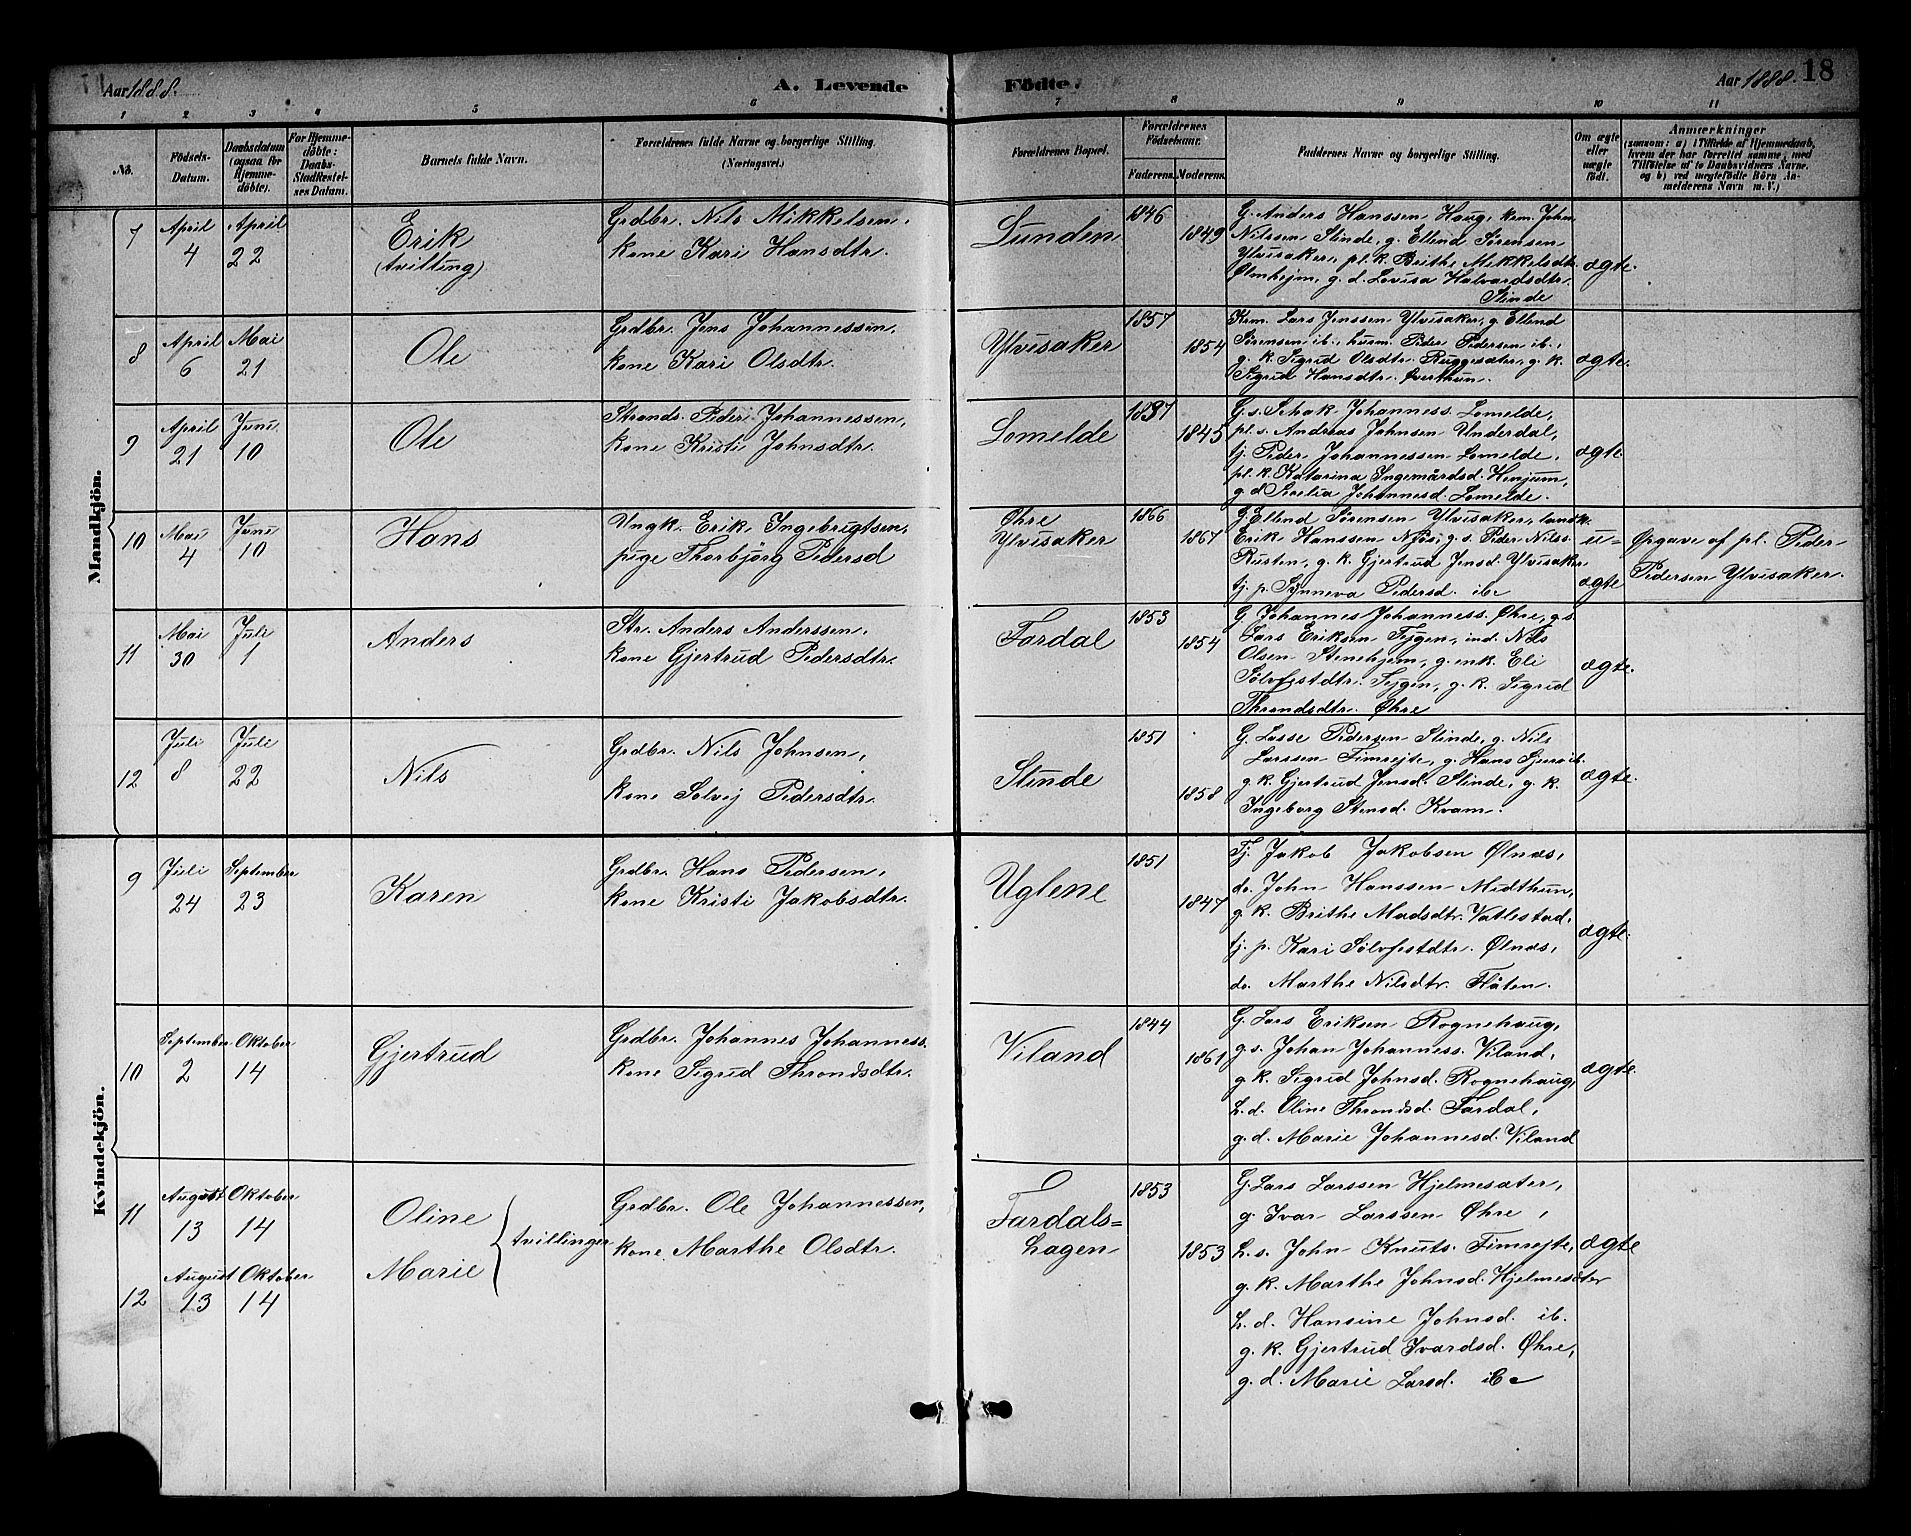 Aar 1888.
A. Levende
Födte.
Aar 1888.
18
1 2 3 4 5 6 7 8 9 10 11
No.
Födsels-
Datum.
Daabsdatum
(ogsaa for
Hjemme-
döbte).
For Hjemme-
döbte:
Daabs-
Stadfæstel-
ses Datum.
Barnets fulde Navn.
Forældrenes fulde Navne og borgerlige Stilling.
(Næringsvei.)
Forældrenes Bopæl.
Forældrenes
Födselsaar.
Faderens. Moderens.
Faddernes Navne og borgerlige Stilling.
Om ægte
eller
uægte
født.
Anmærkninger
(saasom: a) i Tilfælde af Hjemmedaab,
hvem der har forrettet samme, med
Tilföielse af to Daabsvidners Navne,
og b) ved uægtefödte Börn An-
melderens Navn m. V.)
Mandkjön.
7
April
4
April
22
Erik
(tvilling)
Grdbr. Nils Mikkelsen,
kone Kari Hansdtr.
Lunden
1846
1849
G. Anders Hanssen Haug, krm. John
Nilssen Slinde, g. Ellend Sørensen
Ylvisaker, pl. k. Brithe Mikkelsdtr.
Ølmhejm, g. d. Lovisa Halvardsdtr.
Slinde
ægte.
8
April
6
Mai
21
Ole
Grdbr. Jens Johannessen,
kone Kari Olsdtr.
Ylvisaker
1857
1854
Krm. Lars Jenssen Ylvisaker, g. Ellend
Sørensen ib., husm. Peder Pedersen ib.,
g. k. Sigrid Olsdtr. Ruggesæter, g. k.
Sigrid Hansdtr. Øverthun.
ægte.
9
April
21
Juni
10
Ole
Strands. Peder Johannessen,
kone Kristi Johnsdtr.
Lomelde
1837
1845
G. s. Schak Johanness. Lomelde,
pl. s. Andreas Johnsen Underdal,
tj. Peder Johannessen Lomelde,
pl. k. Katarina Ingemårdsd. Henjum,
g. d. Johannesd. Lomelde.
ægte
10
Mai
4
Juni
10
Hans
Ungk. Erik Ingebrigtsen,
pige Thorbjörg Pedersd
Øhre
Ylvisaker
1866
1867
G. Ellend Sørensen Ylvisaker, landh.
Erik Hanssen Njøs, g. s. Peder Nilss.
Rusten, g. k. Gjertrud Jensd. Ylvisaker
tj. p. Synneva Pedersd. ib.
u-
ægte
Opgave af pl. Peder
Pedersen Ylvisaker.
11
Mai
30
Juli
1
Anders
Str. Anders Anderssen,
kone Gjertrud Pedersdtr.
Fardal
1853
1854
G. Johannes Johanness. Øhre, g. s.
Lars Eriksen Fejgen, ind. Nils
Olsen Stenehjem, g. enk. Eli
Sølvfestdtr. Fejgen, g. k. Sigrid
Throndsdtr. Øhre
ægte.
12
Juli
8
Juli
22
Nils
Grdbr. Nils Johnsen,
kone Solvej Pedersdtr.
Slinde
1851
1858
G. Lasse Pedersen Slinde, g. Nils
Larssen Fimrejte, g. Hans ib.
g. k. Gjertrud Jensd. Slinde, g. k.
Ingeborg Stensd. Kvam.
ægte.
Kvindekjön.
9
Juli
24
September
23
Karen
Grdbr. Hans Pedersen,
kone Kristi Jakobsdtr.
Uglene
1851
1847
Tj. Jakob Jakobsen Ølnæs,
do. John Hanssen Midthun,
g. k. Brithe Madsdtr. Vatlestad,
tj. p. Kari Sølvfestdtr. Ølnæs,
do. Marthe Nilsdtr. Flåten.
ægte.
10
September
2
Oktober
14
Gjertrud
Grdbr. Johannes Johanness.
kone Sigrid Throndsdtr.
Viland
1844
1861
G. Lars Eriksen Rognehaug,
g. s. Johan Johanness. Viland,
g. k. Sigrid Johnsd. Rognehaug,
L. d. Oline Throndsd. Fardal,
g. d. Marie Johannesd. Viland
ægte.
11
August
13
Oktober
14
Oline
12
August
13
Oktober
14
Marie
tvillinger
Grdbr. Ole Johannessen,
kone Marthe Olsdtr.
Fardals=
hagen
1853
1853
G. Lars Larssen Hjelmesæter,
g. Ivar Larssen Øhre,
L. s. John Knuts. Fimrejte,
g. k. Marthe Johnsd. Hjelmesæter
L. d. Hansine Johnsd. ib.
g. k. Gjertrud Ivardsd. Øhre,
g. d. Marie Larsd. ib.
ægte